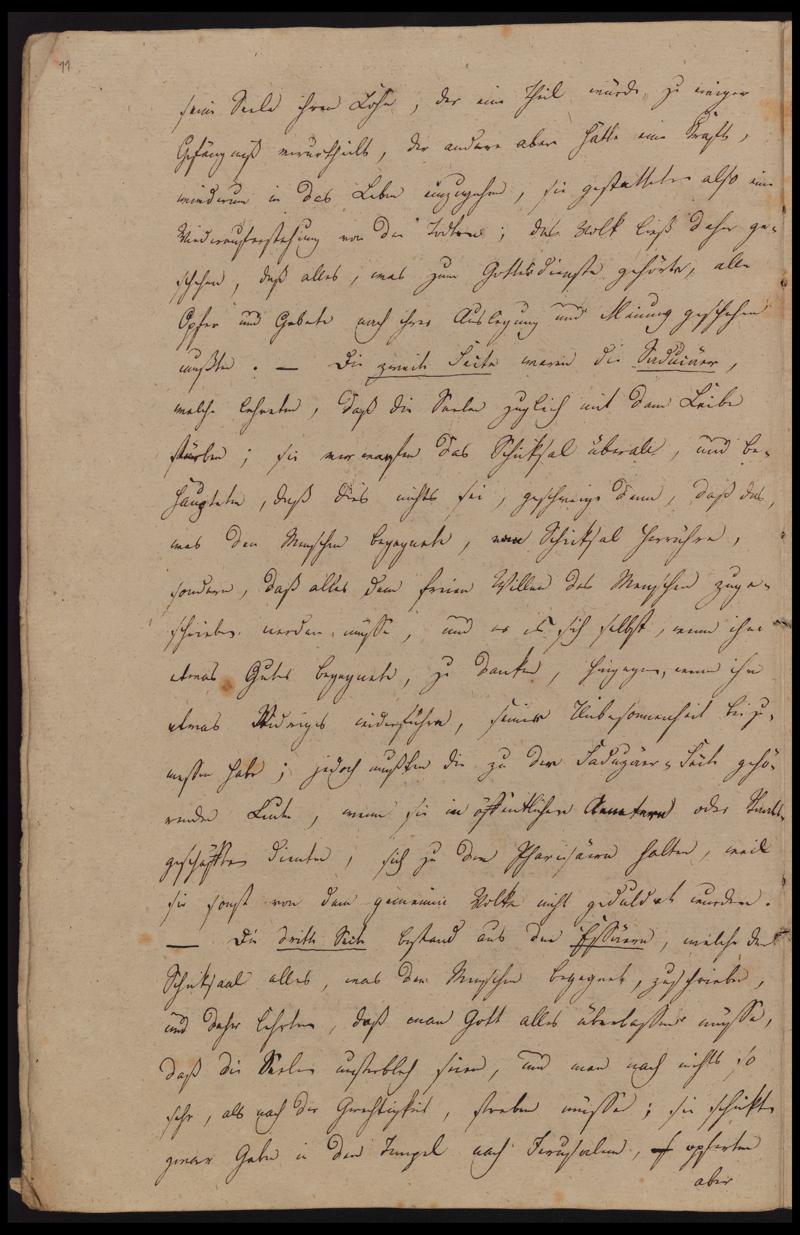 11
seine Seele ihren Lohn, der eine Theil würde zu ewiger
Gefängniß verurtheilt, der andere aber hätte eine Kraft,
wiederum in das Leben einzugehen, sie gestatteten also eine
Wiederauferstehung von den Todten; das Volk ließ daher ge-
schehen, daß alles, was zum Gottesdienste gehörte, alle
Opfer und Gebete nach ihrer Auslegung und Meinung geschehen
mußten. — Die zweite Seite waren die Saducäer,
welche lehreten, daß die Seelen zuglich mit dem Leibe
stürben; sie verwarfen das Schiksal überall, und be-
haupteten, daß dies nichts sei, geschweige denn, daß das,
was den Menschen begegnete, vom Schiksal herrühre,
sondern, daß alles dem freien Willen des Menschen zuge-
schrieben werden müsse, und er es sich selbst, wenn ihm
etwas Gutes begegnete, zu danken, hingegen, wenn ihm
etwas Widriges widerführe, seiner Unbesonnenheit beizu-
messen habe; jedoch mußten die zu der Saduzäer-Secte gehö-
rende Leute, wenn sie in öffentlichen Aemtern oder
geschäften dienten, sich zu den Pharisäern halten, weil
sie sonst von dem gemeinen Volke nicht geduldet wurden.
— Die dritte Secte bestand aus den Essäern, welche dem
Schiksaal alles, was den Menschen begegnet, zuschrieben,
und daher lehrten, daß man Gott alles überlassen müsse,
daß die Seelen unsterblich seien, und man nach nichts so
sehr, als nach der Gerechtigkeit, streben müsse; sie schikten
zwar Gaben in den Tempel nach Jerusalem, opferten
aber